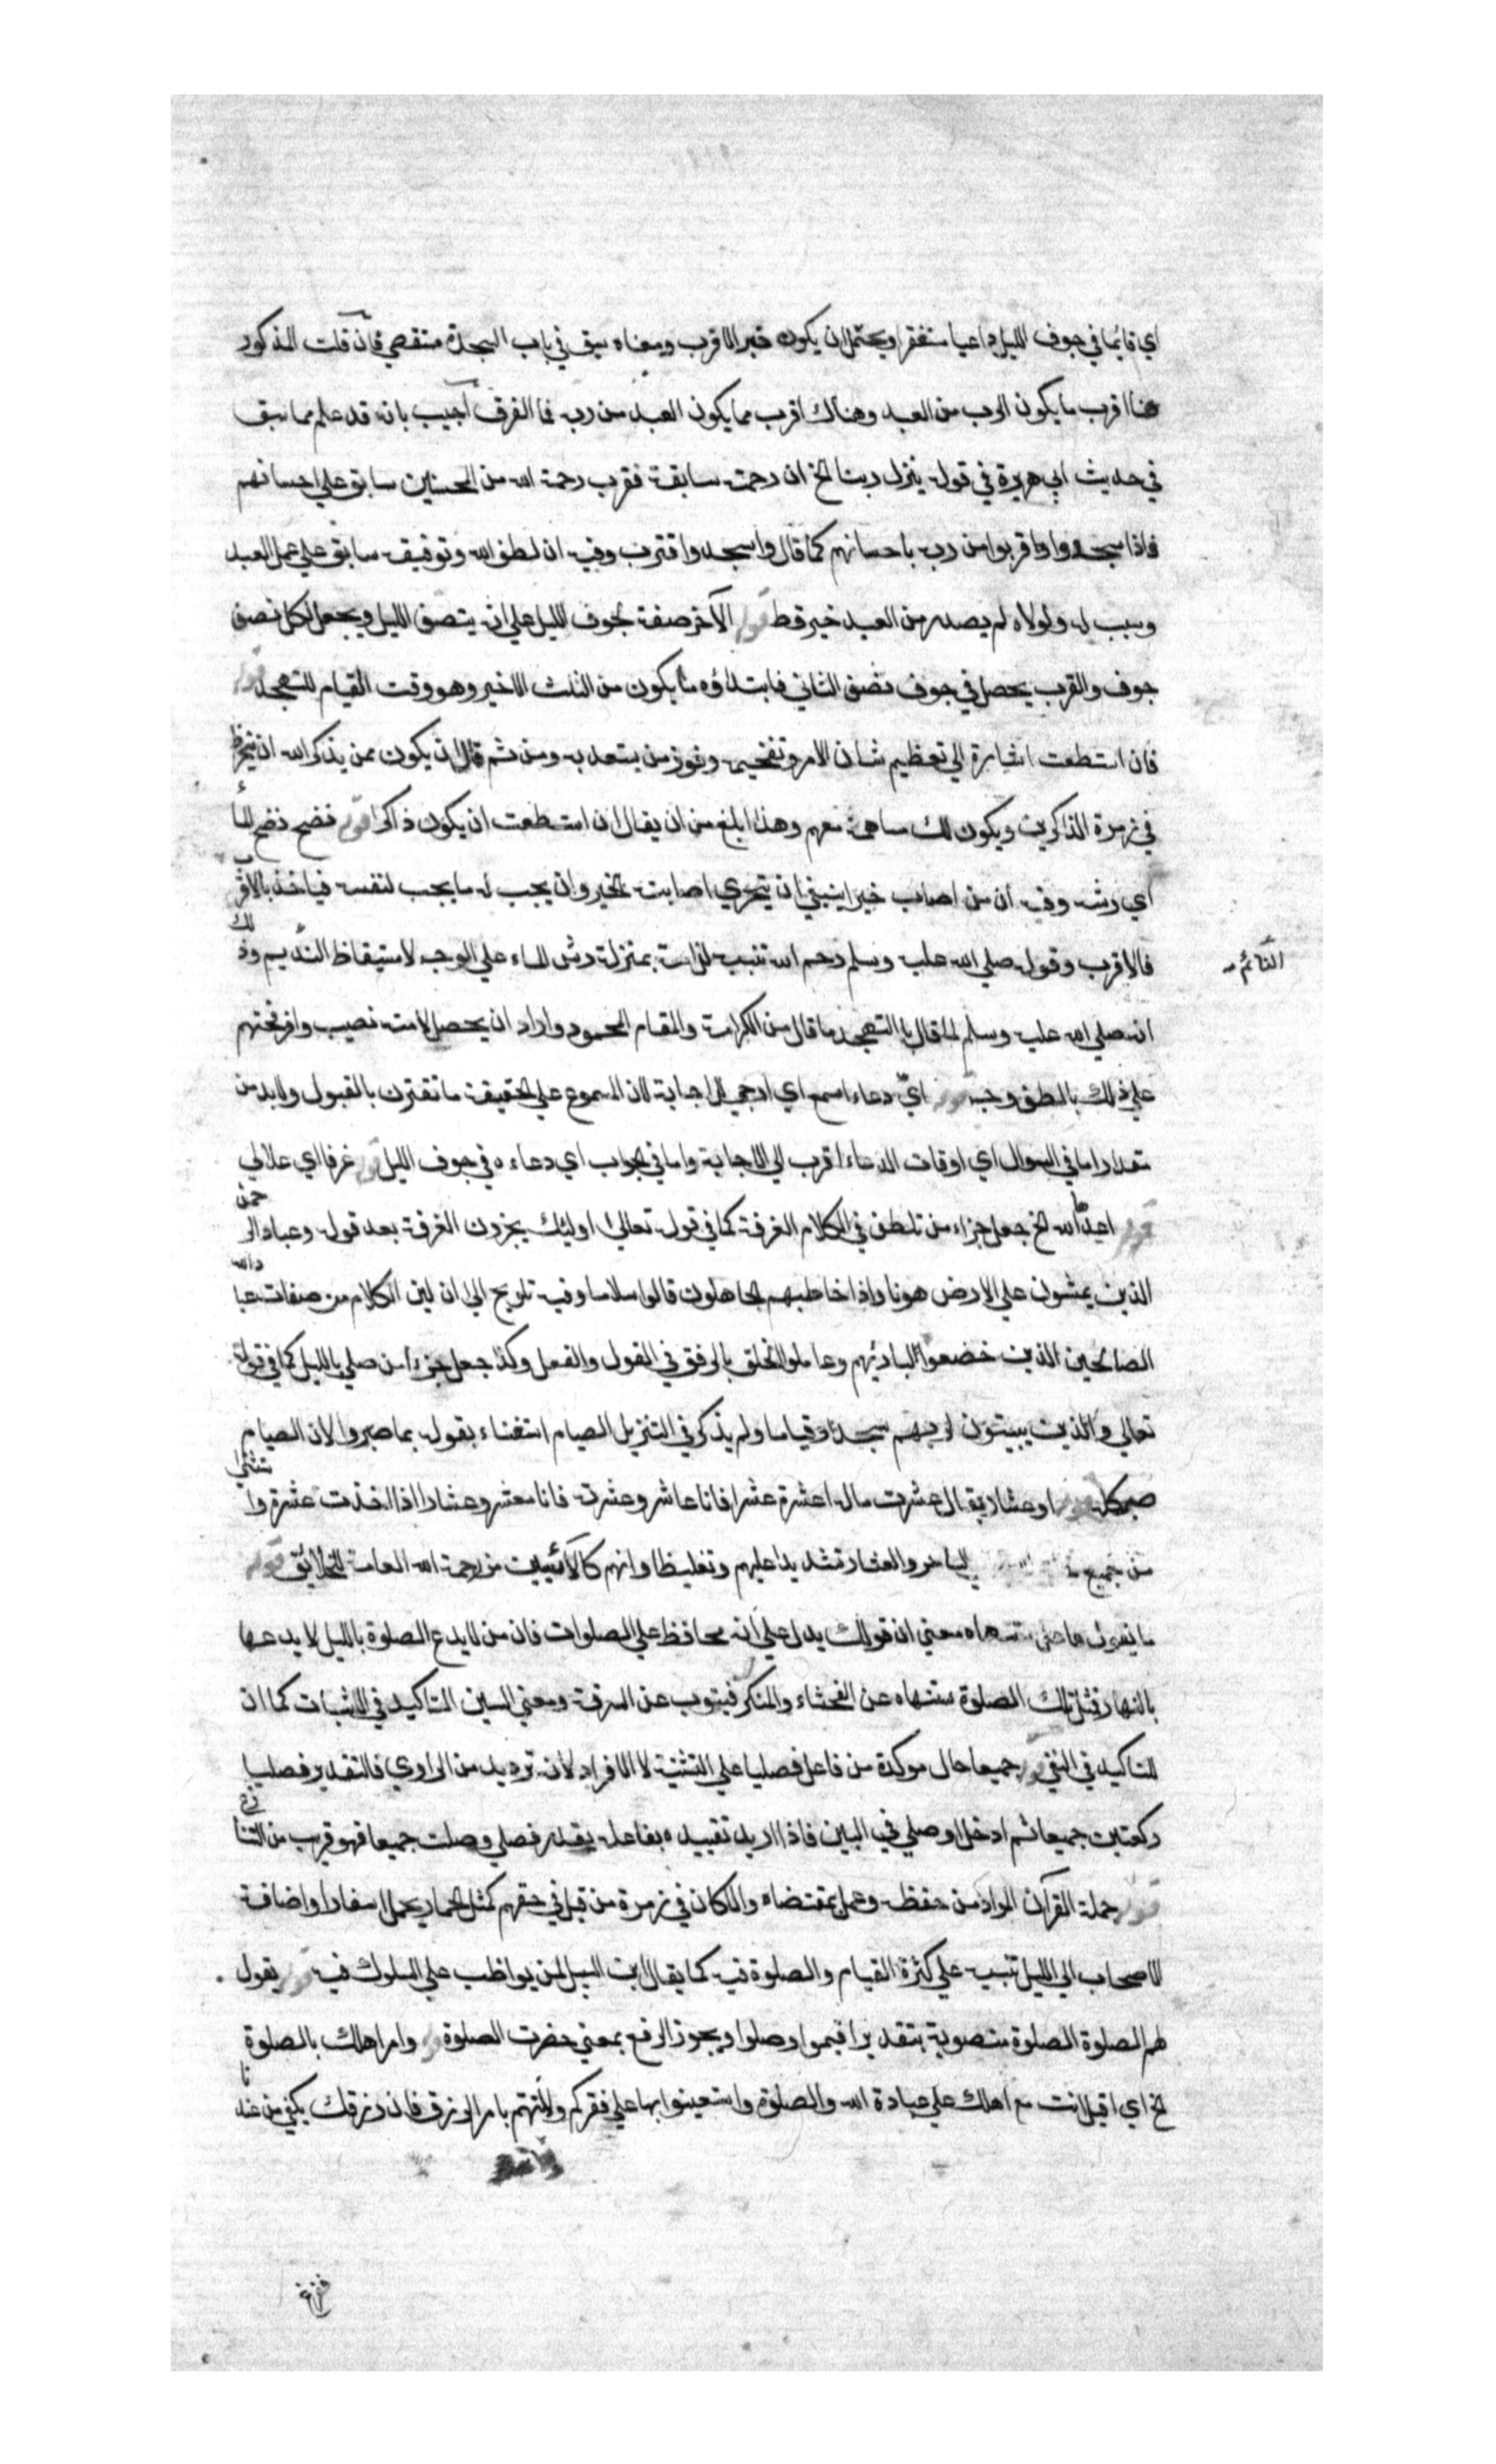 اي قائما في جوف الليل داعيا مستغفرا ويحتمل ان يكون خبر الاقرب ومعناه سبق في باب السجدة مستقصي فان قلت المذكور
هنا اقرب ما يكون الرب من العبد وهناك اقرب مما يكون العبد من ربه فما الفرق اجيب بانه قد علم مما سبق
في حديث ابي هريرة في قوله ينزل ربنا الخ ان رحمته سابقة فقرب رحمة الله من المحسنين سابق علي احسانهم
فاذا سجدوا واقربوا من ربه باحسانهم كما قال واسجد واقترب وفيه ان لطف الله وتوفيقه سابق علي عمل العبد
وسبب له ولولاه لم يصدر من العبد خير قط قوله الآخر صفة لجوف الليل علي انه ينتصف الليل ويجعل لكل نصف
جوف والقرب يحصل في جوف نصف الثاني فابتداؤه ما يكون من الثلث الاخير وهو وقت القيام للتهجد قوله
فان استطعت اشارة الي تعظيم شان الامر وتفخيمه وفوز من يستعد به ومن ثم قال ان يكون ممن يذكر الله ان ينخرط
في زمرة الذاكرين ويكون لك مساهمة معهم وهذا ابلغ من ان يقال ان استطعت ان يكون ذاكرا قوله فنضح نضح الماء
اي رشه وفيه ان من اصاب خيرا ينبغي ان يتحري اصابة الخير وان يحب له ما يحب لنفسه فياخذ بالاقرب
فالاقرب وقوله صلي الله عليه وسلم رحم الله تنبيه للامة بمنزلة رش الماء علي الوجه لاستيقاظ النديم وذلك
النائم
انه صلي الله عليه وسلم لما قال بالتهجد ما قال من الكرامة والمقام المحمود واراد ان يحصل لامته نصيب وافر فحثهم
علي ذلك بالطف وجه قوله ايّ دعاء اسمع اي ارجي للاجابة لان المسموع علي الحقيقة ما تقترن بالقبول ولا بد من
مقدار اما في السوال اي اوقات الدعاء اقرب الي الاجابة واما في الجواب اي دعاءه في جوف الليل قوله غرفا اي علالي
قوله اعدها الله الخ جعل جزاء من تلطف في الكلام الغرفة كما في قوله تعالي اولئك يجزون الغرفة بعد قوله وعباد الرحمن
الذين يمشون علي الارض هونا واذا خاطبهم الجاهلون قالوا سلاما وفيه تلويح الي ان لين الكلام من صفات عباد الله
الصالحين الذين خضعوا لبارئهم وعاملوا الخلق بالرفق في القول والفعل وكذا جعل جزاء من صلي بالليل كما في قوله
تعالي والذين يبيتون لربهم سجدا وقياما ولم يذكر في التنزيل الصيام استغناء بقوله بما صبروا لان الصيام
صبر كله قوله او عشار يقال عشرت ماله اعشره عشرا فانا عاشر وعشرته فانا معشر وعشار اذا اخذت عشره واستثني
من جميع الساحر والعشار تشديدا عليهم وتغليظا وانهم كالآئسين من رحمة الله العامة للخلائق قوله
ما يقول معني ان قولك يدل علي انه محافظ علي الصلوات فان من لا يدع الصلوة بالليل لا يدعها
بالنهار فمثل تلك الصلوة ستنهاه عن الفحشاء والمنكر فيتوب عن السرقة ومعني السين التاكيد في الاثبات كما ان
للتاكيد في النفي قوله جميعا حال موكدة من فاعل فصليا علي التثنية لا الافراد لانه ترديد من الراوي فالتقدير فصليا
ركعتين جميعا ثم ادخل او صلي في البين فاذا اريد تقييده بفاعله يقدر فصلي وصلت جميعا فهو قريب من التنازع
قوله حملة القرآن المراد من حفظه وعمل بمقتضاه والا كان في زمرة من قيل في حقهم كمثل الحمار يحمل اسفارا واضافة
الاصحاب الي الليل تنبيه علي كثرة القيام والصلوة فيه كما يقال ابن السبيل لمن يواظب علي السلوك فيه قوله يقول
لهم الصلوة الصلوة منصوبة بتقدير اقيموا وصلوا ويجوز الرفع بمعني حضرت الصلوة قوله وامر اهلك بالصلوة
الخ اي اقبل انت مع اهلك علي عبادة الله والصلوة واستعينوا بها علي فقركم ولا تهتم بامر الرزق فان رزقك يكفي من عندنا